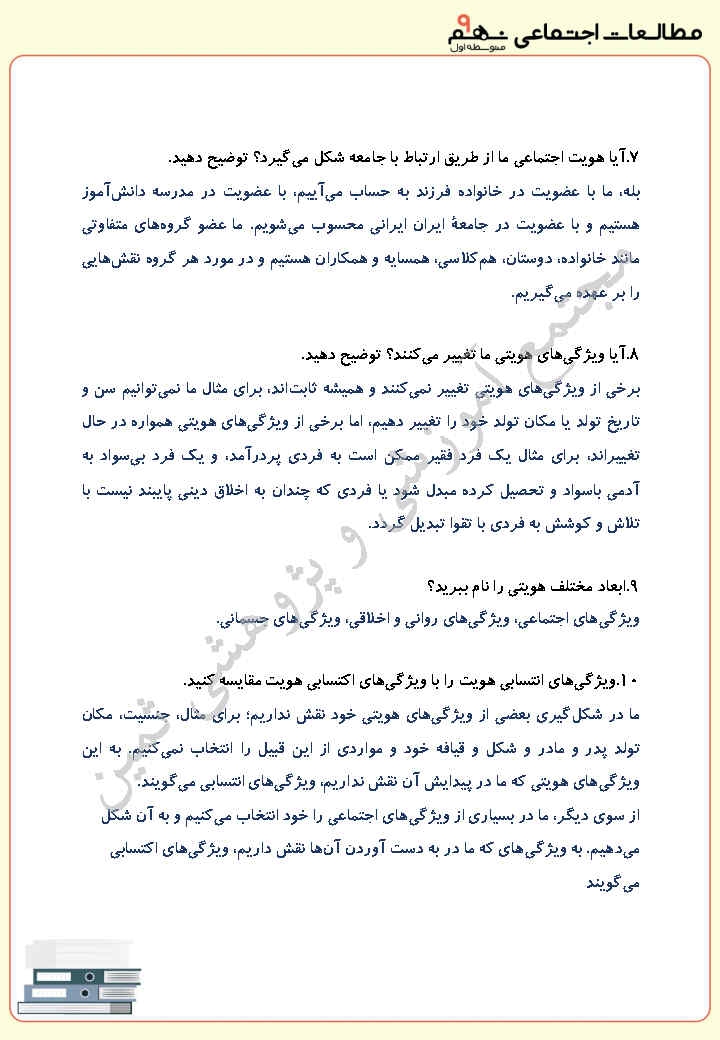 مطالعات اجتماعی نهم ۹
متوسطه اول
۷.آیا هویت اجتماعی ما از طریق ارتباط با جامعه شکل می‌گیرد؟ توضیح دهید.
بله، ما با عضویت در خانواده فرزند به حساب می‌آییم، با عضویت در مدرسه دانش‌آموز
هستیم و با عضویت در جامعهٔ ایران ایرانی محسوب می‌شویم. ما عضو گروه‌های متفاوتی
مانند خانواده، دوستان، هم‌کلاسی، همسایه و همکاران هستیم و در مورد هر گروه نقش‌هایی
را بر عهده می‌گیریم.
۸.آیا ویژگی‌های هویتی ما تغییر می‌کنند؟ توضیح دهید.
برخی از ویژگی‌های هویتی تغییر نمی‌کنند و همیشه ثابت‌اند، برای مثال ما نمی‌توانیم سن و
تاریخ تولد یا مکان تولد خود را تغییر دهیم، اما برخی از ویژگی‌های هویتی همواره در حال
تغییراند، برای مثال یک فرد فقیر ممکن است به فردی پردرآمد، و یک فرد بی‌سواد به
آدمی باسواد و تحصیل کرده مبدل شود یا فردی که چندان به اخلاق دینی پایبند نیست با
تلاش و کوشش به فردی با تقوا تبدیل گردد.
۹.ابعاد مختلف هویتی را نام ببرید؟
ویژگی‌های اجتماعی، ویژگی‌های روانی و اخلاقی، ویژگی‌های جسمانی.
۱۰.ویژگی‌های انتسابی هویت را با ویژگی‌های اکتسابی هویت مقایسه کنید.
ما در شکل‌گیری بعضی از ویژگی‌های هویتی خود نقش نداریم؛ برای مثال، جنسیت، مکان
تولد پدر و مادر و شکل و قیافه خود و مواردی از این قبیل را انتخاب نمی‌کنیم. به این
ویژگی‌های هویتی که ما در پیدایش آن نقش نداریم، ویژگی‌های انتسابی می‌گویند.
از سوی دیگر، ما در بسیاری از ویژگی‌های اجتماعی را خود انتخاب می‌کنیم و به آن شکل
می‌دهیم. به ویژگی‌های که ما در به دست آوردن آن‌ها نقش داریم، ویژگی‌های اکتسابی
می‌گویند
مجتمع آموزشی و پژوهشی ثمین